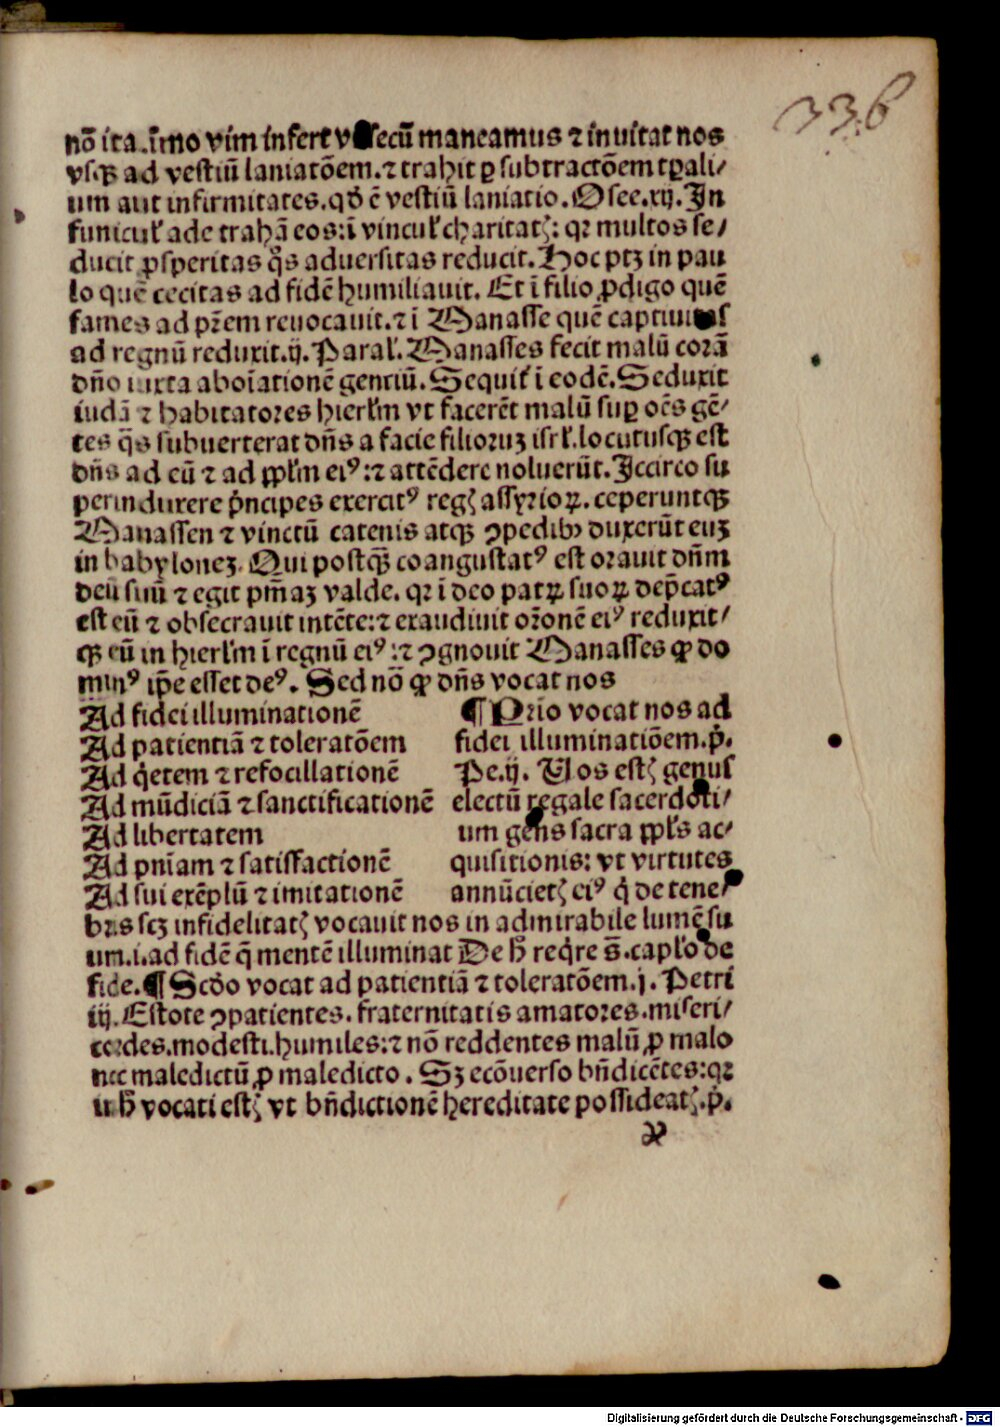 336
nō ita.īmo vim infert v secū maneamus ⁊ inuitat nos
vsqꝫ ad vestiū laniatōem.⁊ trahit ꝑ subtractōem tꝑali/
um aut infirmitates.qd̄ ē vestiū laniatio.Osee.xij.In
funicul̕ ade trahā eos:ī vincul̕ charitatꝭ: qꝛ multos se/
ducit ꝓsperitas q̄s aduersitas reducit.Hoc ptꝫ in pau
lo quē cecitas ad fidē humiliauit. Et ī filio ꝓdigo quē
fames ad pr̄em reuocauit.⁊ ī Manasse quē captiuitas
ad regnū reduxit.ij.Paral̕.Manasses fecit malū corā
dn̄o iuxta aboīationē gentiū.Sequit̕ ī eodē.Seduxit
iudā ⁊ habitatores hierl̕m vt facerēt malū suꝑ oēs gē/
tes q̄s subuerterat dn̄s a facie filioruꝫ isrl̕.locutusqꝫ est
dn̄s ad eū ⁊ ad ppl̕m eiꝰ:⁊ attēdere noluerūt.Iccirco su
perinduxere pͥncipes exercitꝰ regꝭ assyrioꝝ.ceperuntqꝫ
Manassen ⁊ vinctū catenis atqꝫ ꝯpedibꝰ duxerūt euꝫ
in babyloneꝫ. Qui postqꝫ̄ coangustatꝰ est orauit dn̄m
deū suū ⁊ egit pn̄iaꝫ valde. qꝛ ī deo patꝝ suoꝝ dep̄catꝰ
est eū ⁊ obsecrauit intēte:⁊ exaudiuit orōnē eiꝰ reduxit/
qꝫ eū in hierl̕m ī regnū eiꝰ:⁊ ꝯgnouit Manasses ꝙ do
minꝰ ip̄e esset deꝰ. Sed nō ꝙ dn̄s vocat nos
Ad fidei illuminationē
Ad patientiā ⁊ toleratōem
Ad qͥetem ⁊ refocillationē
Ad mūdiciā ⁊ sanctificationē
Ad libertatem
Ad pn̄iam ⁊ satisfactionē
Ad sui exēplū ⁊ imitationē
¶ Prīo vocat nos ad
fidei illuminatiōem.pͥ.
Pe.ij. Uos estꝭ genus
electū regale sacerdoti/
um gens sacra ppl̕s ac/
quisitionis: vt virtutes
annūcietꝭ eiꝰ qͥ de tene/
bris scꝫ infidelitatꝭ vocauit nos in admirabile lumē su
um.i.ad fidē q̄ mentē illuminat De h̄ reqͥre s̄.capl̕o de
fide.¶ Scd̄o vocat ad patientiā ⁊ toleratōem.j. Petri
iij. Estote ꝯpatientes. fraternitatis amatores.miseri/
cordes.modesti.humiles:⁊ nō reddentes malū ꝓ malo
nec maledictū ꝓ maledicto. Sꝫ ecōuerso bn̄dicētes:qꝛ
ī h̄ vocati estꝭ vt bn̄dictionē hereditate possideatꝭ.pͥ.
Digitalisierung gefördert durch die Deutsche Forschungsgemeinschaft - DFG